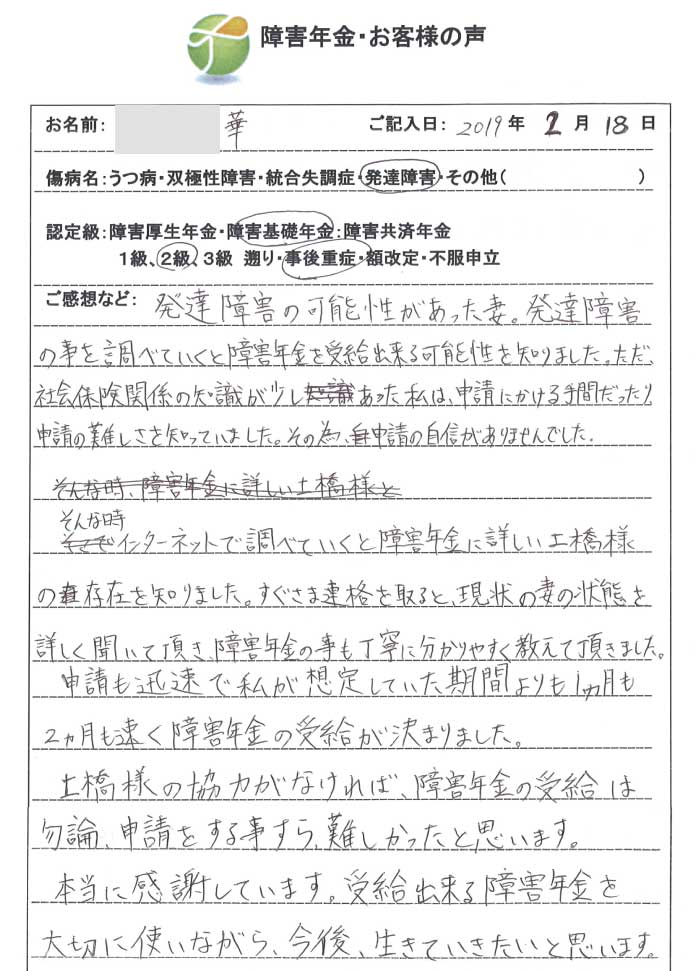 障害年金・お客様の声
お名前: 華 ご記入日: 2019 年 2 月 18 日
傷病名:うつ病・双極性障害・統合失調症・発達障害・その他( )
認定級:障害厚生年金・障害基礎年金:障害共済年金
1級、2級、3級 遡り・事後重症・額改定・不服申立
ご感想など: 発達障害の可能性があった妻。発達障害
の事を調べていくと障害年金を受給出来る可能性を知りました。ただ、
社会保険関係の知識が少しあった私は、申請にかける手間だったり、
申請の難しさを知っていました。その為、申請の自信がありませんでした。
そんな時、障害年金に詳しい土橋様と
そんな時
インターネットで調べていくと障害年金に詳しい土橋様
の存在を知りました。すぐさま連格を取ると、現状の妻の状態を
詳しく聞いて頂き、障害年金の事も丁寧に分かりやすく教えて頂きました。
申請も迅速で私が想定していた期間よりも1ヵ月も
2ヵ月も速く障害年金の受給が決まりました。
土橋様の協力がなければ、障害年金の受給は
勿論、申請をする事すら、難しかったと思います。
本当に感謝しています。受給出来る障害年金を
大切に使いながら、今後、生きていきたいと思います。